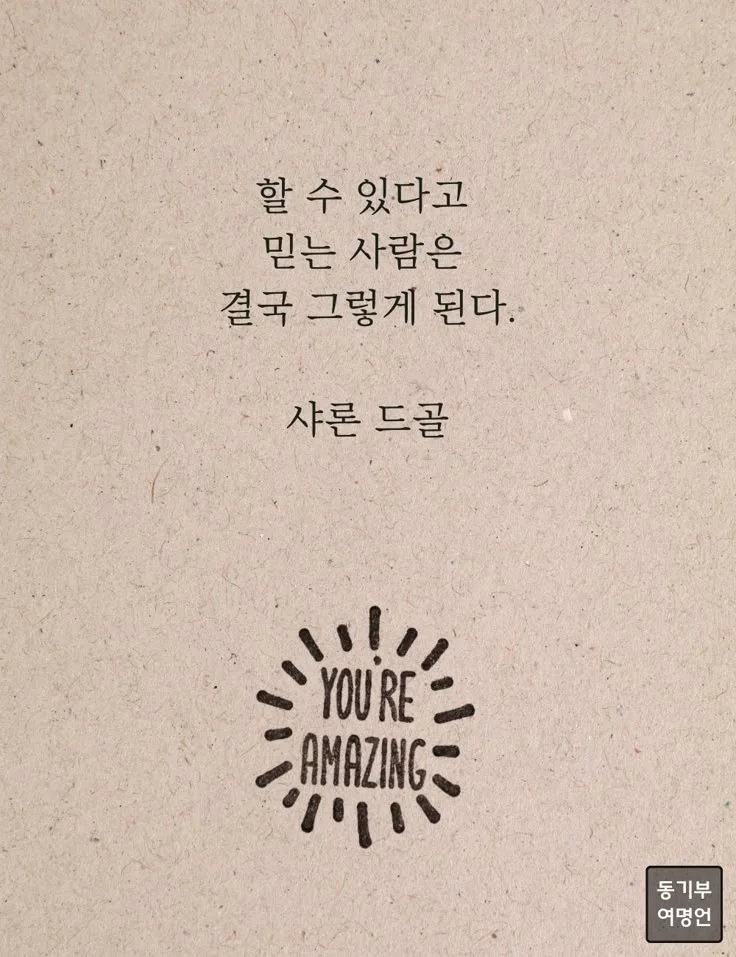 할 수 있다고
믿는 사람은
결국 그렇게 된다.
샤론 드골
YOU'RE
AMAZING
동기부
여명언